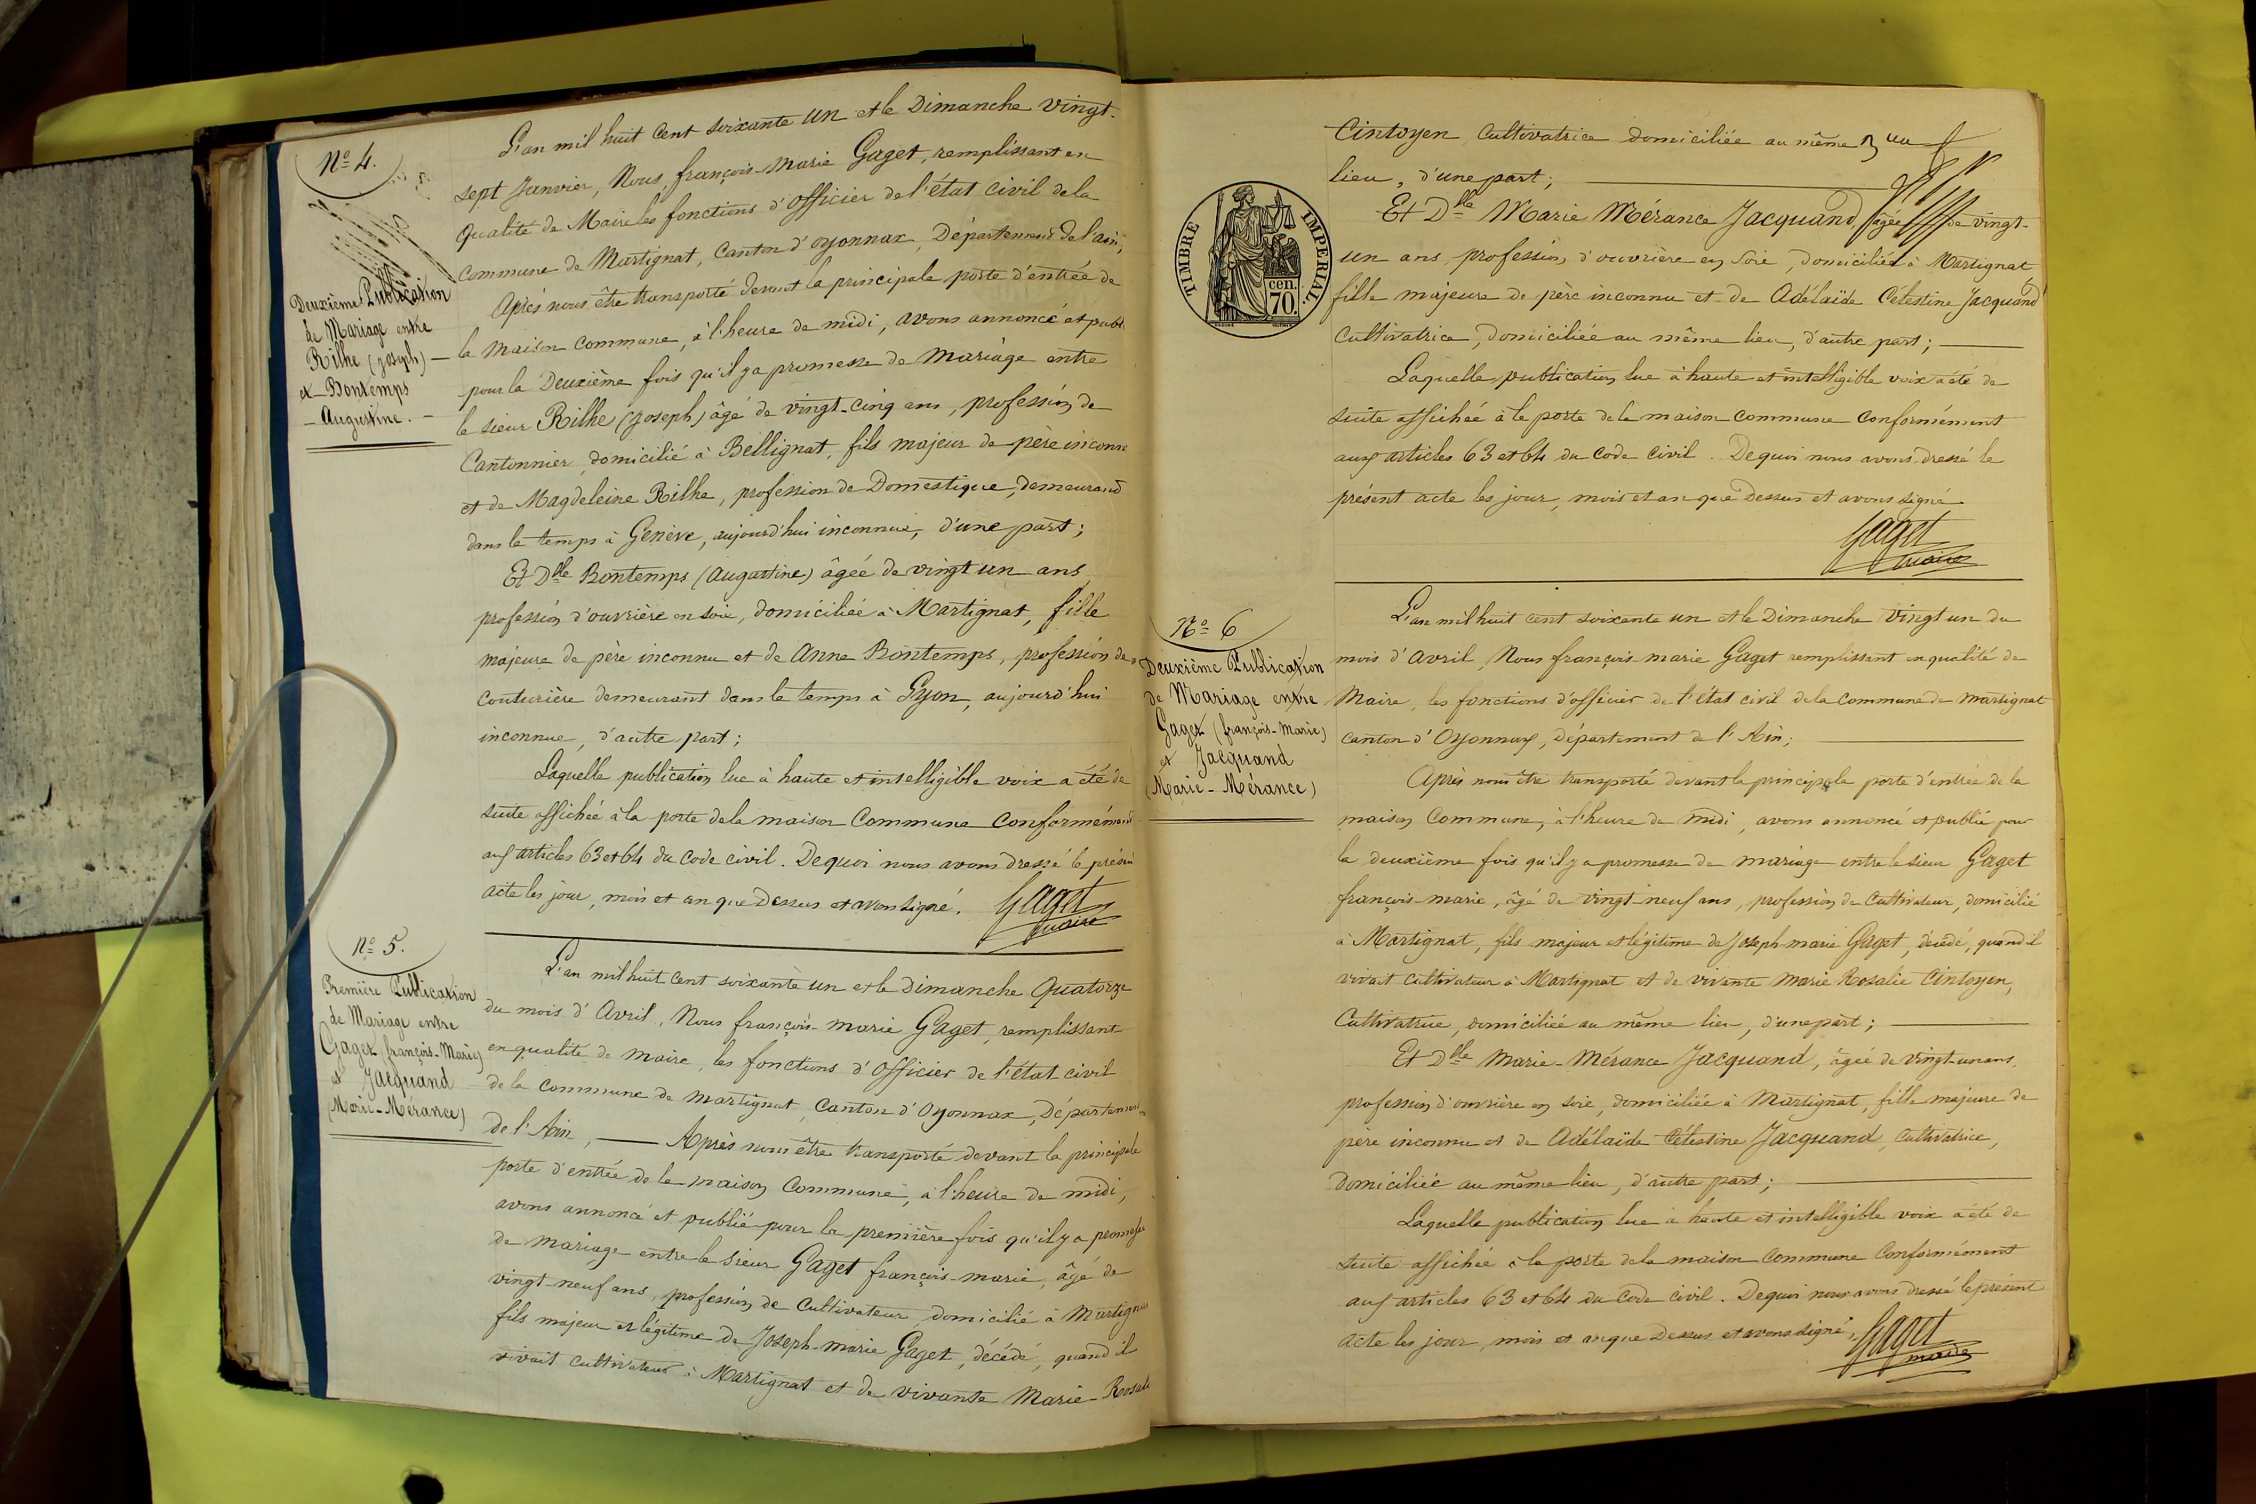 N° 4.
Deuxième Publication
de Mariage entre
Rilhe (Joseph) —
et Bontemps
— Augustine. —
L'an mil huit Cent soixante un et le Dimanche vingt-
sept Janvier, Nous, françois-Marie Gaget, remplissant en
qualité de Maire les fonctions d'officier de l'état civil de la
commune de Martignat, Canton d'oyonnax, Département de l'ain,
Après nous être transporté devant la principale porte d'entrée de
la Maison Commune, à l'heure de midi, avons annoncé et publ
pour la Deuxième fois qu'il y a promesse de Mariage entre
le sieur Rilhe (Joseph) âgé de vingt-cinq ans, profession de
Cantonnier, domicilié à Bellignat, fils majeur de père inconnu
et de Magdeleine Rilhe, profession de Domestique, demeurand
dans le temps à Genève, aujourd'hui inconnue, d'une part;
Et Dlle Bontemps (Augustine) âgée de vingt un ans
profession d'ouvrière en soie, domiciliée à Martignat, fille
majeure de père inconnu et de Anne Bontemps, profession de
couturière demeurant dans le temps à Lyon, aujourd'hui
inconnue, d'autre part;
Laquelle publication lue à haute et intelligible voix a été de
suite affichée à la porte de la maison Commune Conformément
aux articles 63 et 64 du Code civil. De quoi nous avons dressé le présent
acte les jour, mois et an que Dessus et avons signé. Gaget
maire
N° 5.
Première Publication
de Mariage entre
Gaget (françois-Marie)
et Jacquand
(Marie-Mérance)
L'an mil huit Cent soixante un et le Dimanche Quatorze
du mois d'Avril, Nous françois-marie Gaget, remplissant
en qualité de maire, les fonctions d'Officier de l'état civil
de la Commune de Martignat, Canton d'Oyonnax, Département
de l'Ain, — Après nous être transporté devant la principale
porte d'entrée de la maison Commune, à l'heure de midi,
avons annoncé et publié pour la première fois qu'il y a promesse
de mariage entre le sieur Gaget françois-marie, âgé de
vingt-neuf ans, profession de Cultivateur, domicilié à Martignat
fils majeur et légitime de Joseph-marie Gaget, décédé, quand il
vivait cultivateur à Martignat et de vivante Marie-Rosalie
Cintoyen Cultivatrice domiciliée au même
lieu, d'une part; —
Et Dlle Marie Mérance Jacquand, âgée de vingt-
un ans, profession d'ouvrière en soie, domiciliée à Martignat
fille majeure de père inconnu et de Adélaïde Célestine Jacquand
Cultivatrice, Domiciliée au même lieu, d'autre part; —
Laquelle publication lue à haute et intelligible voix a été de
suite affichée à la porte de la maison Commune Conformément
aux articles 63 et 64 du Code Civil. De quoi nous avons dressé le
présent acte les jour, mois et an que Dessus et avons signé
Gaget
maire
TIMBRE IMPÉRIAL.
cen.
70.
N° 6
Deuxième Publication
de Mariage entre
Gaget (françois-Marie)
et Jacquand
(Marie-Mérance)
L'an mil huit cent soixante un et le Dimanche Vingt un du
mois d'Avril, Nous françois marie Gaget remplissant en qualité de
Maire, les fonctions d'officier de l'état civil de la Commune de Martignat
canton d'Oyonnax, Département de l'Ain; —
Après nous être transporté devant la principale porte d'entrée de la
maison Commune, à l'heure de midi, avons annoncé et publié pour
la deuxième fois qu'il y a promesse de mariage entre le sieur Gaget
françois-marie, âgé de vingt-neuf ans, profession de Cultivateur, domicilié
à Martignat, fils majeur et légitime de Joseph-marie Gaget, décédé, quand il
vivait cultivateur à Martignat et de vivante Marie Rosalie Cintoyen,
Cultivatrice, domiciliée au même lieu, d'une part; —
Et Dlle Marie-Mérance Jacquand, âgée de vingt un ans,
profession d'ouvrière en soie, domiciliée à Martignat, fille majeure de
père inconnu et de Adélaïde Célestine Jacquand, Cultivatrice,
Domiciliée au même lieu, d'autre part; —
Laquelle publication lue à haute et intelligible voix a été de
suite affichée à la porte de la maison Commune Conformément
aux articles 63 et 64 du Code civil. De quoi nous avons dressé le présent
acte les jour, mois et an que Dessus et avons signé, Gaget
maire